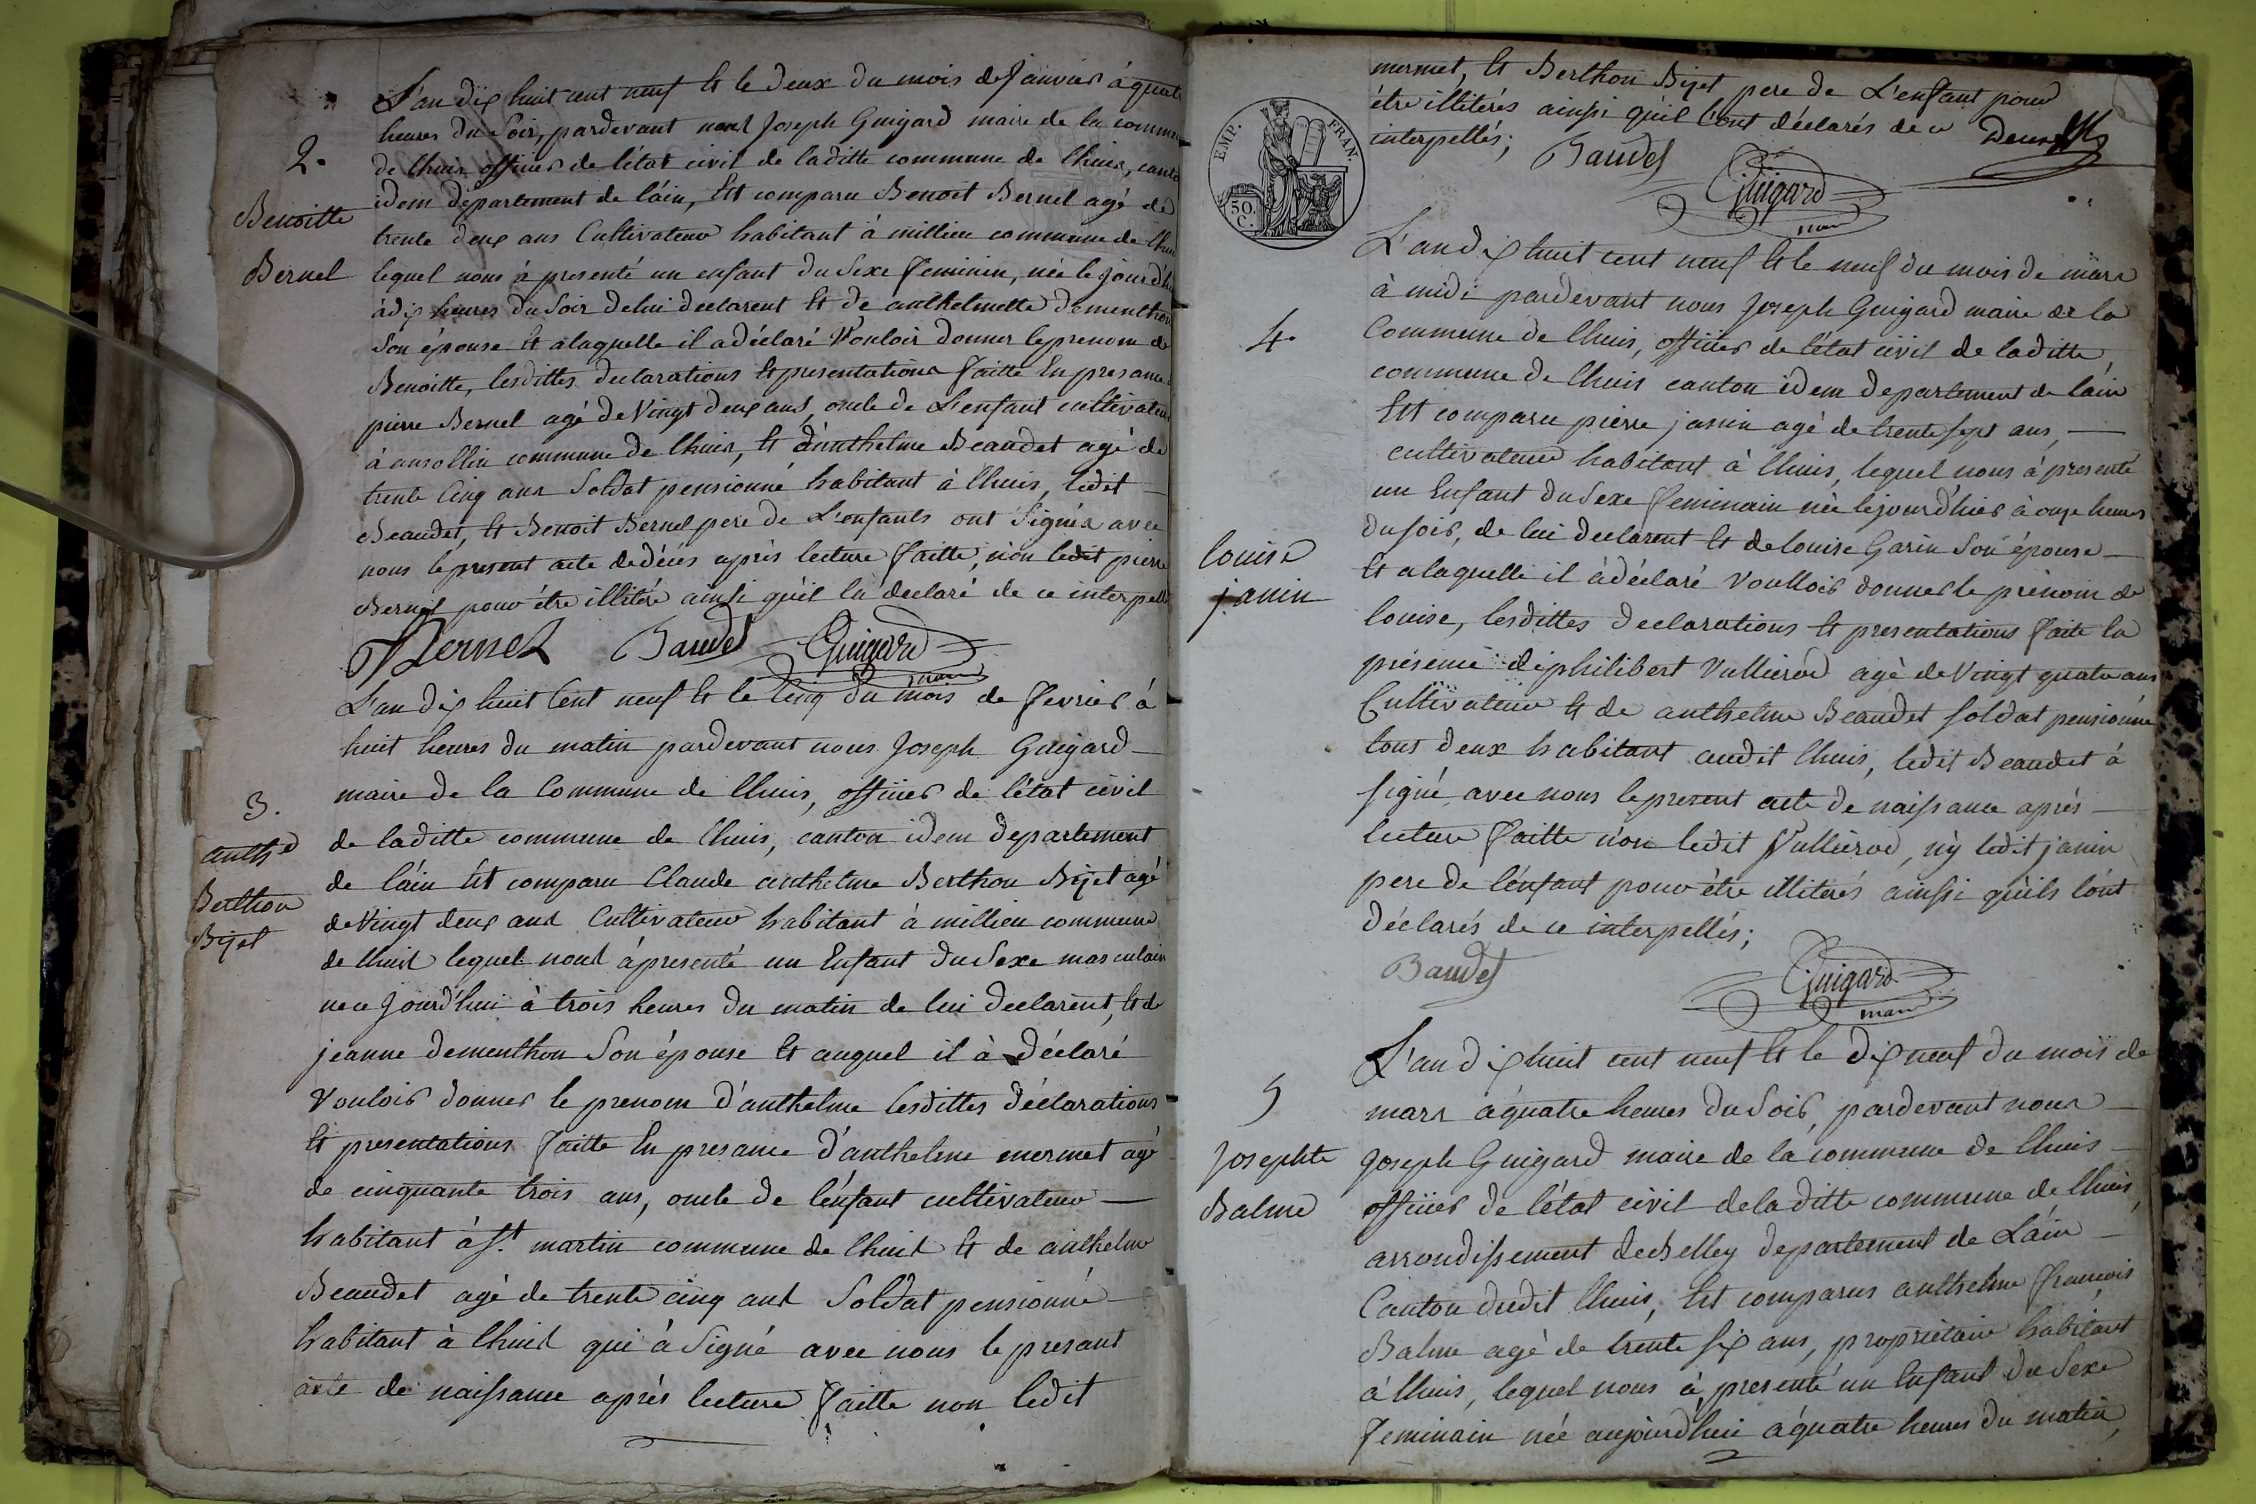 L'an dix huit cent neuf Et le deux du mois de Janvier à quatr
heures du Soir, pardevant nous Joseph Guigard maire de la commun
de lhuis officier de l'état civil de laditte commune de lhuis, canto
idem département de l'áin, Est comparu Benoit Bernel agé de
2.
Benoitte
Bernel
trente deux ans Cultivateur habitant à millieu commune de lhuis
lequel nous à presenté un enfant du Sexe feminin, née le jourd'hui
à dix heures du Soir de lui declarent Et de anthelmette dementhon
Son épouse Et a laquelle il a déclaré Vouloir donner le prenom de
Benoitte, lesdittes declarations Et presentations faitte En presance
pierre Bernel agé de Vingt deux ans, oncle de L'enfant cultivateur
à ansollin commune de lhuis, Et d'anthelme Beaudet agé de
trente Cinq ans Soldat pensionné habitant à lhuis, ledit
Beaudet, Et Benoit Bernel pere de L'enfants ont Signés avec
nous le present acte de décés après lecture faitte, non ledit pierre
Bernel pour être illitéré ainsi qu'il la declaré de ce interpellé
Bernel Baudet Guigard
maire
L'an dix huit Cent neuf Et le Cinq du mois de fevrier à
huit heures du matin pardevant nous Joseph Guigard
maire de la Commune de lhuis, officier de l'état civil
3.
anthe
Berthon
Bijet
de laditte commune de lhuis, canton idem departement
de l'áin Est comparu Claude anthelme Berthon Bijet agé
de Vingt deux ans Cultivateur habitant à millieu commune
de lhuis lequel nous à presenté un Enfant du Sexe masculain
né ce jourd'hui à trois heures du matin de lui declarent, Et de
jeanne dementhon Son épouse Et auquel il à Déclaré
Vouloir donner le prenom d'anthelme lesdittes déclarations
Et presentations faitte En presance d'anthelme mermet agé
de cinquante trois ans, oncle de l'enfant cultivateur
habitant à St. martin commune de lhuis Et de anthelme
Beaudet agé de trente cinq ans Soldat pensionné
habitant à lhuis qui à Signé avec nous le presant
acte de naissance après lecture faitte non ledit
mermet, Et Berthon Bijet pere de L'enfant pour
être illiterés ainssi qu'il lont déclarés de ce
interpellés; Baudet
Guigard
maire
EMP. FRAN.
50. C.
L'an dix huit cent neuf Et le neuf du mois de mars
à midi pardevant nous Joseph Guigard maire de la
4.
Commune de lhuis, officier de l'état civil de laditte
commune de lhuis canton idem departement de l'áin
Est comparu pierre janin agé de trente sept ans,
cultivateur habitant à lhuis, lequel nous à presenté
un Enfant du Sexe feminain née le jourd'hier à onze heures
du soir, de lui declarent Et de louise Garin Son épouse
louise
janin
Et a laquelle il à déclaré voulloir donner le prénom de
louise, lesdittes declarations Et presentations faite En
présence de philibert Vullierod agé de Vingt quatre ans
Cultivateur Et de anthelme Beaudet soldat pensionné
tous deux habitant audit lhuis, ledit Beaudet à
signé avec nous le present acte de naissance aprés
lecture faitte non ledit Vullierod, ny ledit janin
pere de l'enfant pour être illiterés ainssi qu'ils lont
déclarés de ce interpellés;
Baudet Guigard
maire
L'an dix huit cent neuf Et le dix neuf du mois de
mars à quatre heures du Soir, pardevant nous
5
Josephte
Balme
Joseph Guigard maire de la commune de lhuis
officier de l'état civil de laditte commune de lhuis,
arrondissement de Belley departement de L'áin
Canton dudit lhuis, Est comparus anthelme françois
Balme agé de trente six ans, propriétaire habitant
à lhuis, lequel nous à presenté un Enfant du Sexe
feminain née aujourdhui à quatre heures du matin,